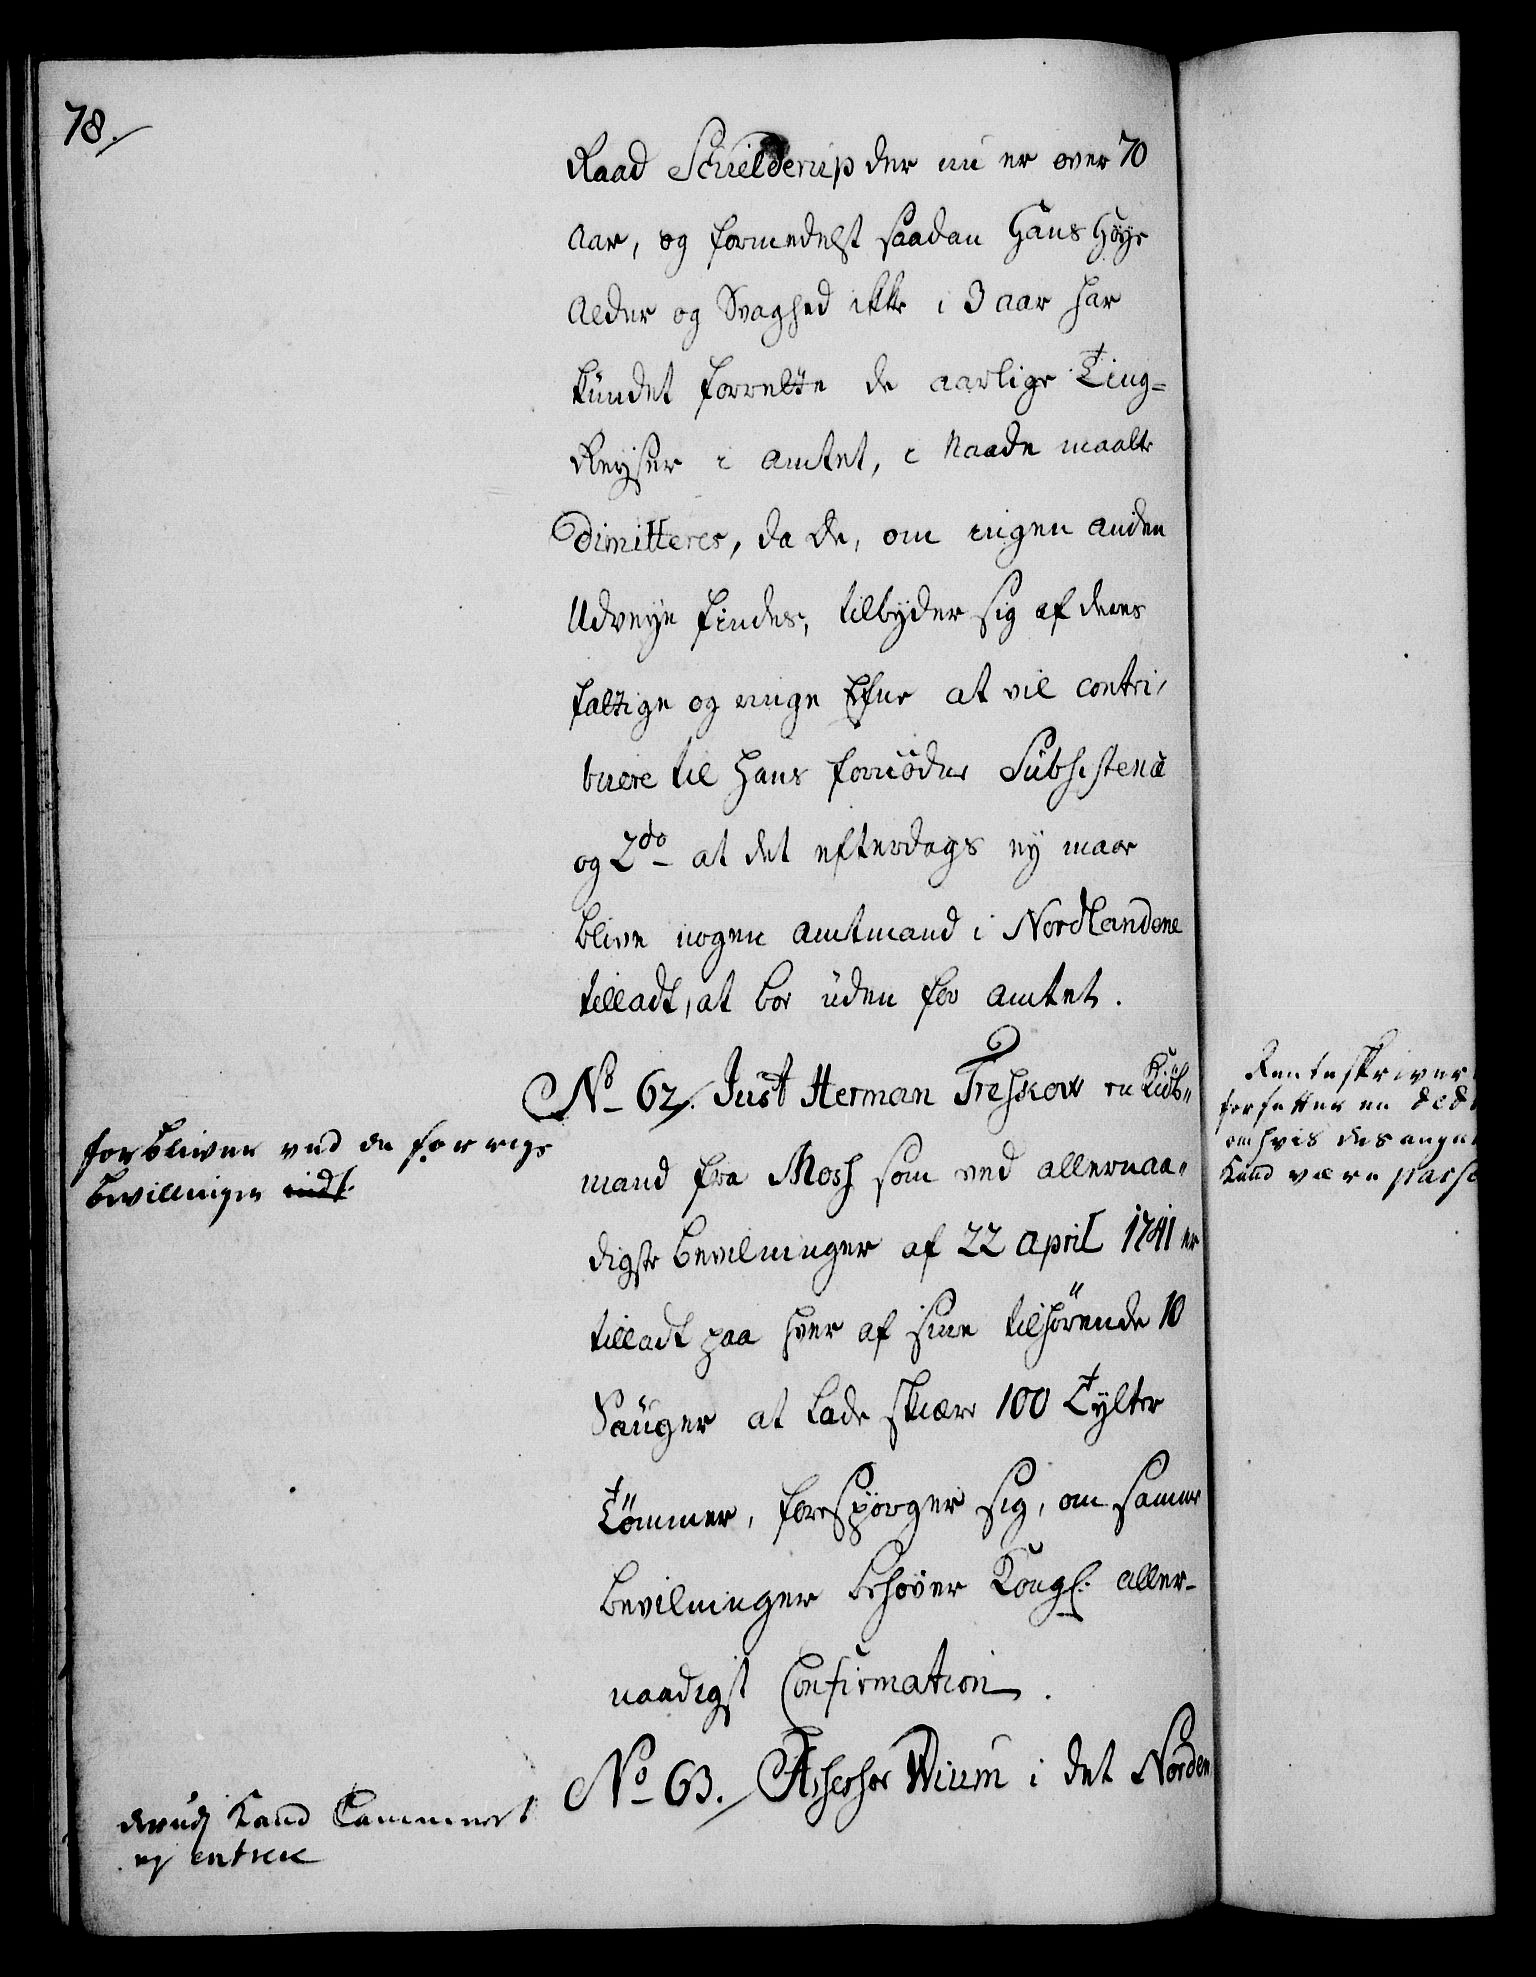 78.
Raad Schielderup der nu er over 70
Aar, og formedelst saadan Hans Høye
Alder og Svaghed ikke i 3 aar har
kundet forrette de aarlige Ting-
Reyser i Amtet, i Naade maatte
Dimitteres, da de, om ingen anden
Udveye findes, tilbyder sig af deres
fattige og ringe Efne at vil contri-
buere til hans fornødne Subsistence
og 2do at det efterdags ey maae
blive nogen Amtmand i Nordlandene
tilladt, at boe uden for Amtet.
No 62. Just Herman Treskow en Kiøb-
mand fra Moss som ved allernaa-
digste Bevilninger af 22 April 1741 er
tilladt paa hver af sine tilhørende 10
Sauger at lade skiære 100 Tylter
Tømmer, forespørger sig, om samme
Bevilninger behøver Kongl. aller-
naadigst Confirmation.
No 63. Assessor Wium i det Norden
forbliver ved de forrige
bevillinger
derudj kand Cammeret
ej entrere
Renteskriver
forfatter en
om hvis des angaa
kand være passe